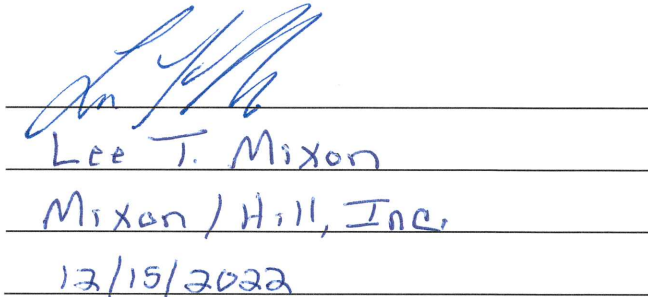 Lee T. Mixon
Mixon / Hill, Inc.
12/15/2022